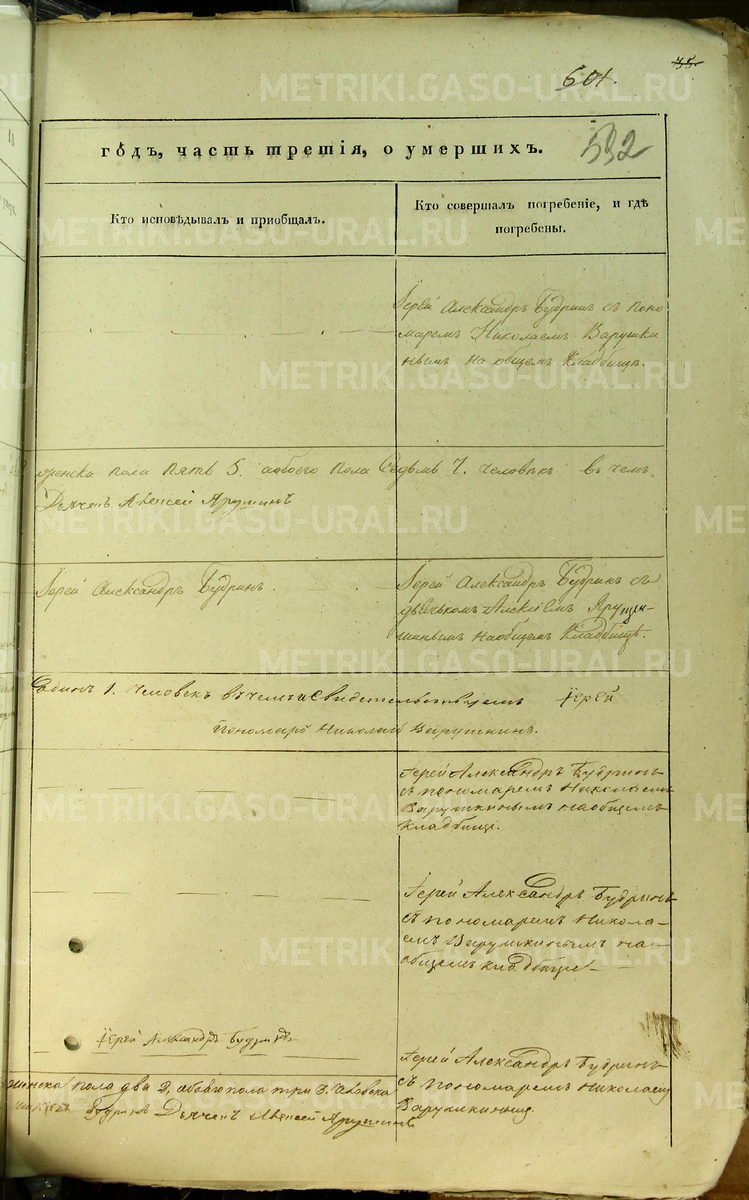 35.
601.
годъ, часть третія, о умершихъ.
532
Кто исповѣдывалъ и приобщалъ.
Кто совершалъ погребеніе, и гдѣ
погребены.
Іерей Александръ Будринъ съ поно
маремъ Николаемъ Варушки
нымъ на общемъ кладбищѣ.
женска пола пять 5. а обоего пола седмь 7. человѣкъ въ чемъ
Дьячекъ Алексей
Іерей Александръ Будринъ.
Іерей Александръ Будринъ съ
дьячькомъ Алексіемъ
на общемъ кладбищѣ.
Одинъ 1. человекъ въ чемъ и свидетельствуемъ Іерей
пономарь Николай Варушкинъ.
Іерей Александръ Будринъ
съ пономаремъ Николаемъ
Варушкинымъ на общемъ
кладбищѣ.
Іерей Александръ Будринъ
съ пономаремъ Никола-
емъ Варушкинымъ на
общемъ кладбище
Іерей Александръ Будринъ
Іерей Александръ Будринъ
съ пономаремъ Николаемъ
Варушкинымъ.
женска пола два 2, обоего пола три 3. человека
Будринъ Дьячекъ Алексей
METRIKI.GASO-URAL.RU